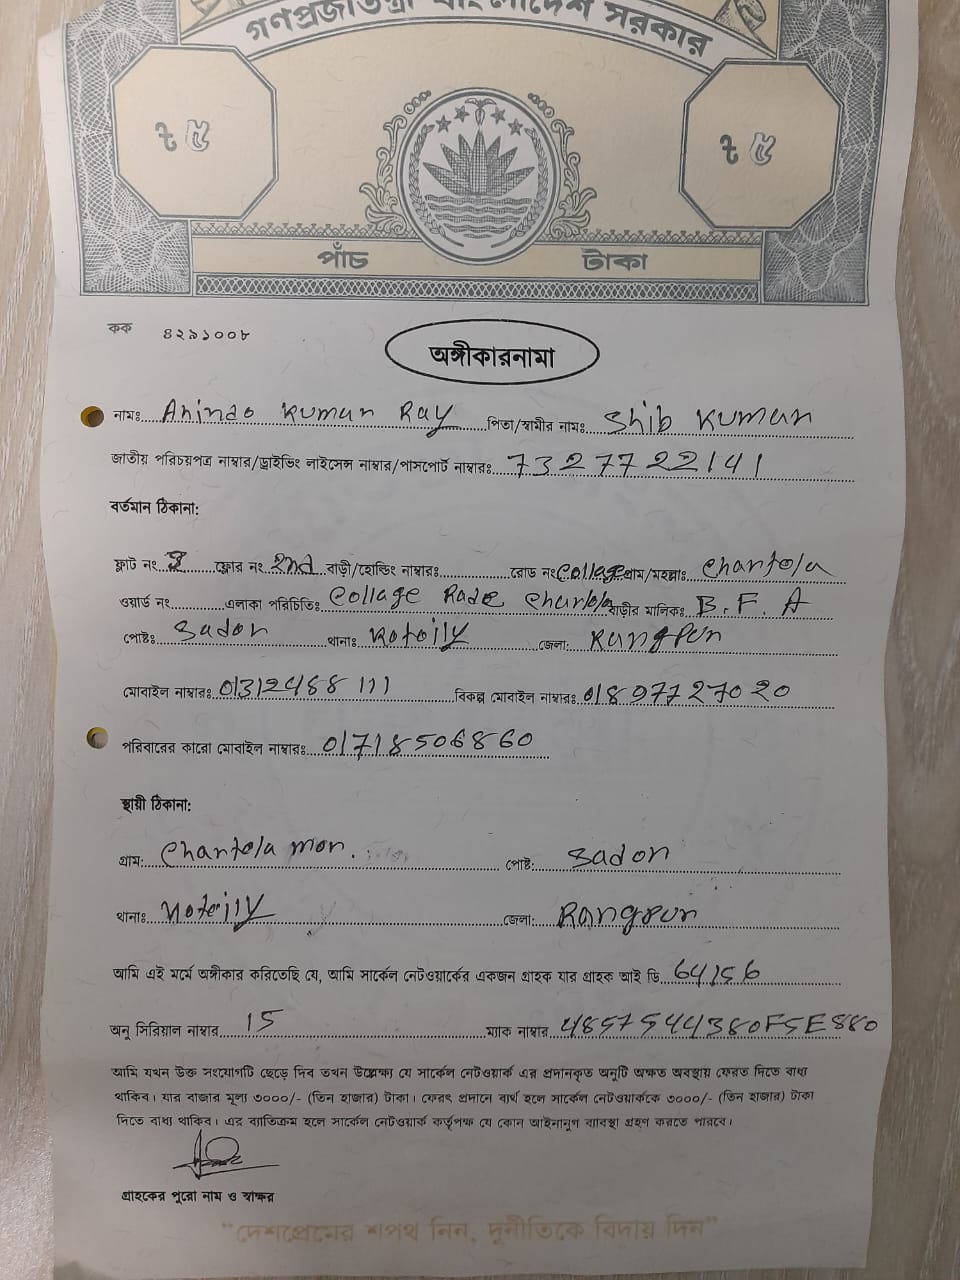 গণপ্রজাতন্ত্রী বাংলাদেশ সরকার
৳ ৫ ৳ ৫
পাঁচ টাকা
কক ৪২৯১০০৮
অঙ্গীকারনামা
নামঃ Anindo Kumar Ray পিতা/স্বামীর নামঃ Shib Kumar
জাতীয় পরিচয়পত্র নাম্বার/ড্রাইভিং লাইসেন্স নাম্বার/পাসপোর্ট নাম্বারঃ 7327722141
বর্তমান ঠিকানা:
ফ্লাট নং ফ্লোর নং 2nd বাড়ী/হোল্ডিং নাম্বারঃ রোড নং Collage গ্রাম/মহল্লাঃ Chartola
ওয়ার্ড নং এলাকা পরিচিতিঃ Collage Rode Chartola বাড়ীর মালিকঃ B.F.A
পোষ্টঃ Sador থানাঃ Kotoily জেলা: Rangpur
মোবাইল নাম্বারঃ 01312488111 বিকল্প মোবাইল নাম্বারঃ 01897727020
পরিবারের কারো মোবাইল নাম্বারঃ 01718506860
স্থায়ী ঠিকানা:
গ্রাম: Chartola mor. পোষ্ট: Sador
থানাঃ Koteily জেলা: Rangpur
আমি এই মর্মে অঙ্গীকার করিতেছি যে, আমি সার্কেল নেটওয়ার্কের একজন গ্রাহক যার গ্রাহক আই ডি 64156
অনু সিরিয়াল নাম্বার 15 ম্যাক নাম্বার 4857544380F5E880
আমি যখন উক্ত সংযোগটি ছেড়ে দিব তখন উল্লেক্ষ্য যে সার্কেল নেটওয়ার্ক এর প্রদানকৃত অনুটি অক্ষত অবস্থায় ফেরত দিতে বাধ্য
থাকিব। যার বাজার মূল্য ৩০০০/- (তিন হাজার) টাকা। ফেরৎ প্রদানে ব্যর্থ হলে সার্কেল নেটওয়ার্ককে ৩০০০/- (তিন হাজার) টাকা
দিতে বাধ্য থাকিব। এর ব্যতিক্রম হলে সার্কেল নেটওয়ার্ক কর্তৃপক্ষ যে কোন আইনানুগ ব্যবস্থা গ্রহণ করতে পারবে।
গ্রাহকের পুরো নাম ও স্বাক্ষর
“দেশপ্রেমের শপথ নিন, দুর্নীতিকে বিদায় দিন”